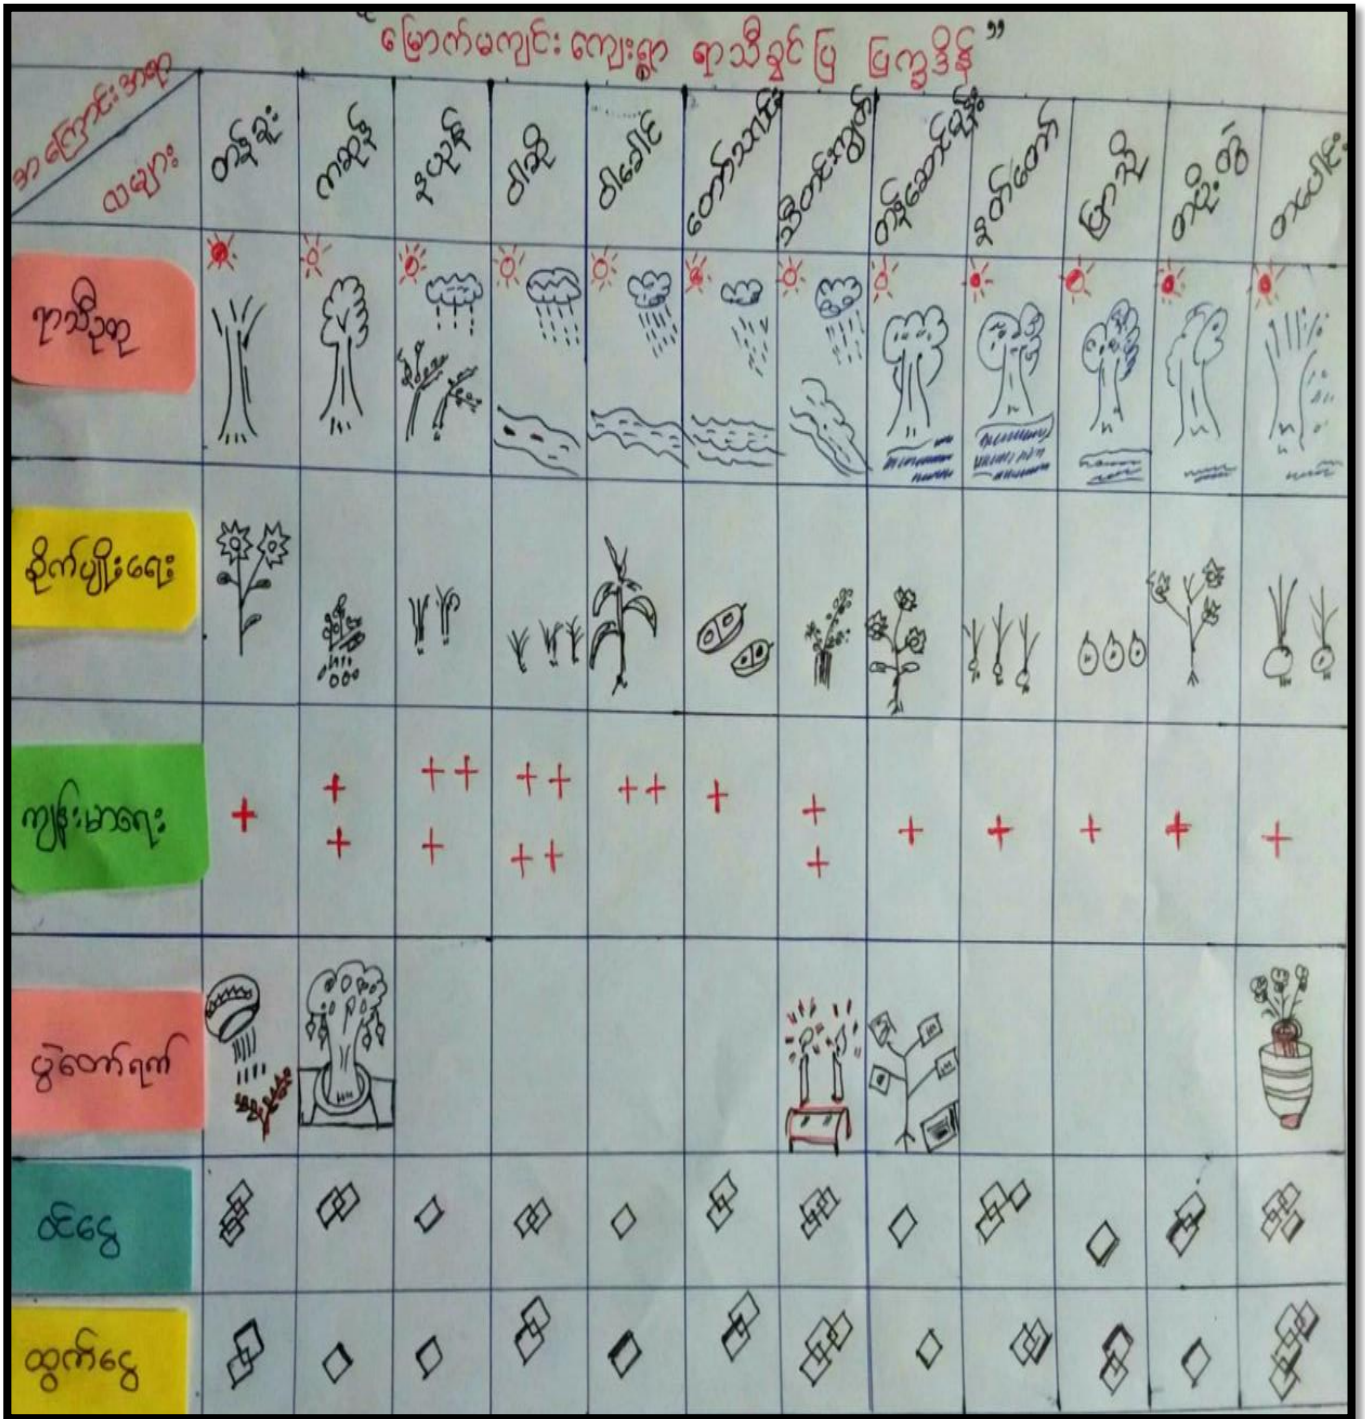 “မြောက်မကျင်း ကျေးရွာ ရာသီခွင်ပြ ပြက္ခဒိန်”
အကြောင်းအရာ
လများ
တန်ခူး ကဆုန် နယုန် ဝါဆို ဝါခေါင် တော်သလင်း သီတင်းကျွတ် တန်ဆောင်မုန်း နတ်တော် ပြာသို တပို့တွဲ တပေါင်း
ရာသီဥတု
စိုက်ပျိုးရေး
ကျန်းမာရေး
ပွဲတော်ရက်
ဝင်ငွေ
ထွက်ငွေ